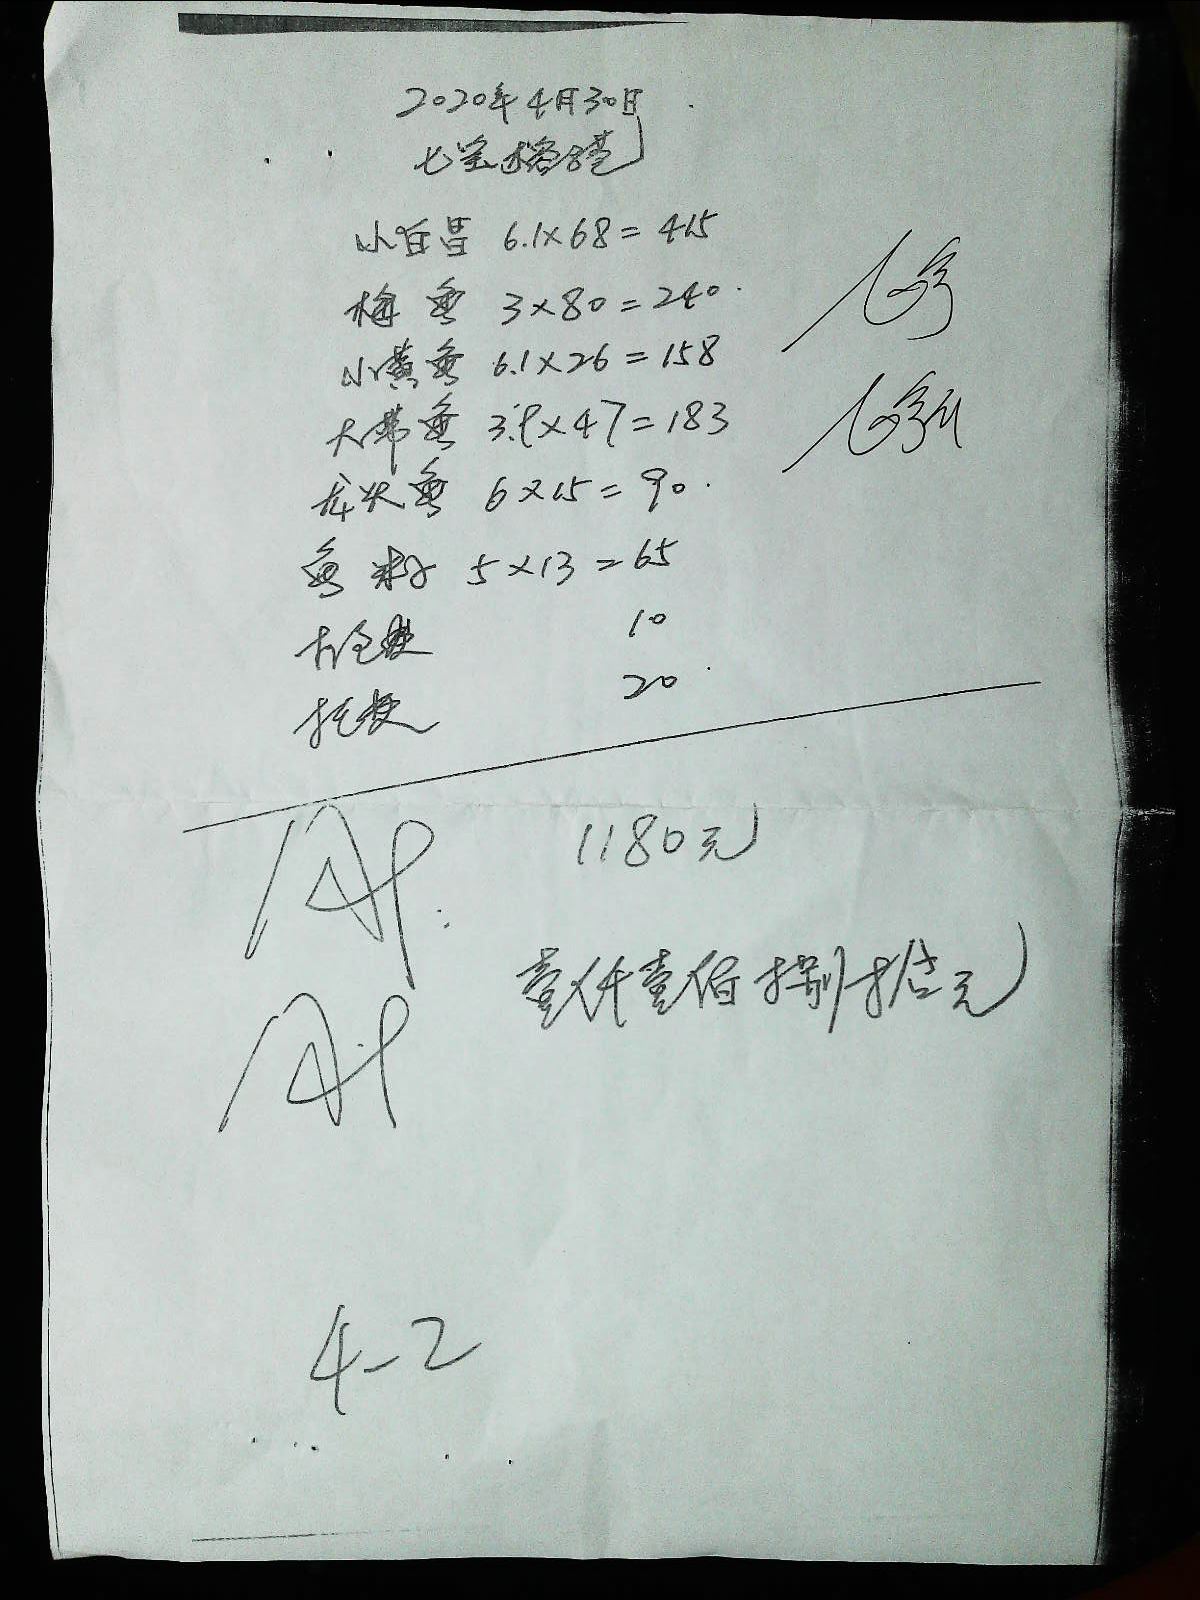 2020年4月30日
七宝
小白昌 6.1×68=415
梅鱼 3×80=240
小黄鱼 6.1×26=158
大带鱼 3.9×47=183
龙头鱼 6×15=90
鱼籽 5×13=65
10
托费 20
1180元
壹仟壹佰捌拾元
4-2